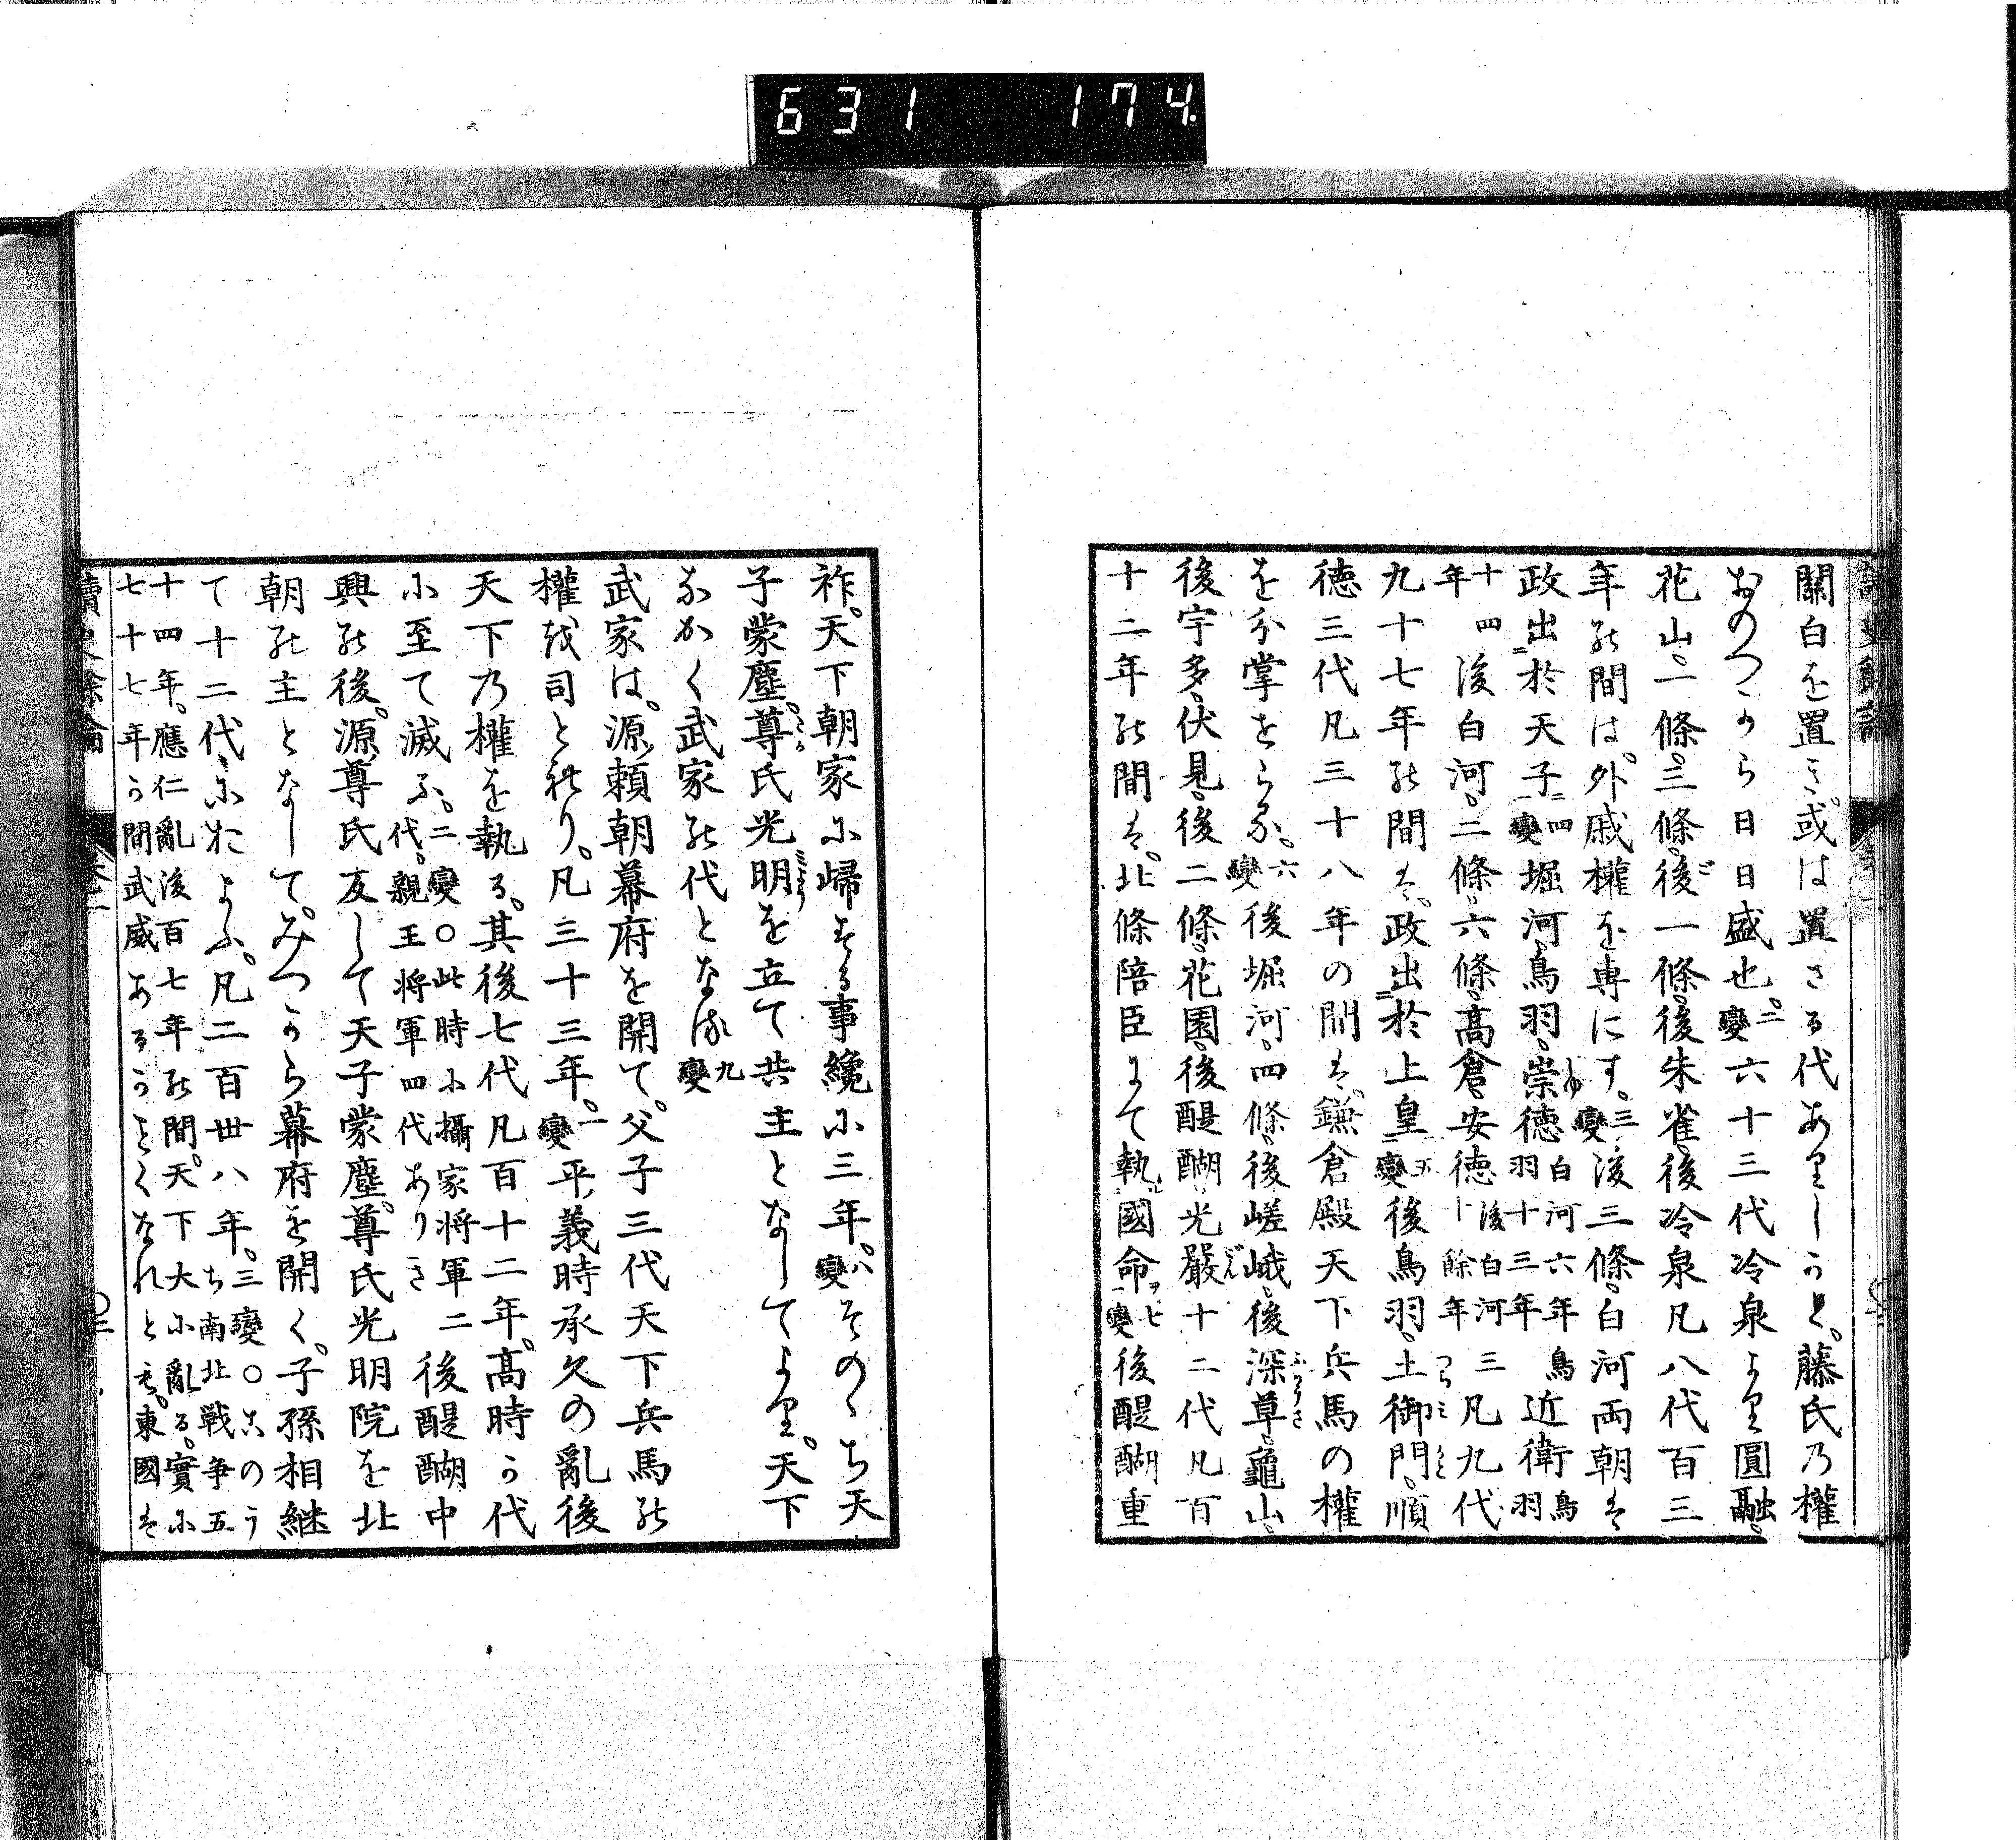 631 174
關白を置き。或は置さる代ありしかど。藤氏乃權
おのつから日日盛也。二變 六十三代冷泉より圓融。
花山。一條。三條。後一條。後朱雀。後冷泉凡八代百三
年の間は。外戚權を専にす。三變 後三條。白河両朝は
政出於天子 四變 堀河。鳥羽。崇徳 白河六年鳥羽十三年 近衛 鳥羽
十四年 後白河。二條。六條。高倉。安徳 後白河三十餘年 凡九代
九十七年の間は。政出於上皇 五變 後鳥羽。土御門。順
徳三代凡三十八年の間は。鎌倉殿天下兵馬の權
を分掌せらる。六變 後堀河。四條。後嵯峨。後深草。龜山。
後宇多。伏見。後二條。花園。後醍醐。光嚴十二代凡百
十二年の間は。北條陪臣にて執國命 七變 後醍醐重
祚。天下朝家に歸する事纔に三年。八變 そのゝち天
子蒙塵。尊氏光明を立て共主となしてより。天下
ながく武家の代となる 九變
武家は。源頼朝幕府を開て。父子三代天下兵馬の
權を司とれり。凡三十三年。一變 平義時承久の亂後
天下乃權を執る。其後七代凡百十二年。高時か代
に至て滅ふ。二變〇此時に攝家将軍二代。親王将軍四代ありき 後醍醐中
興の後。源尊氏反して天子蒙塵。尊氏光明院を北
朝の主となして。みつから幕府を開く。子孫相継
て十二代におよふ。凡二百卅八年。三變〇このうち南北戦争五
十四年。應仁亂後百七年の間。天下大に亂る。實に
七十七年か間武威あるかことくなれとも。東國は
讀史餘論